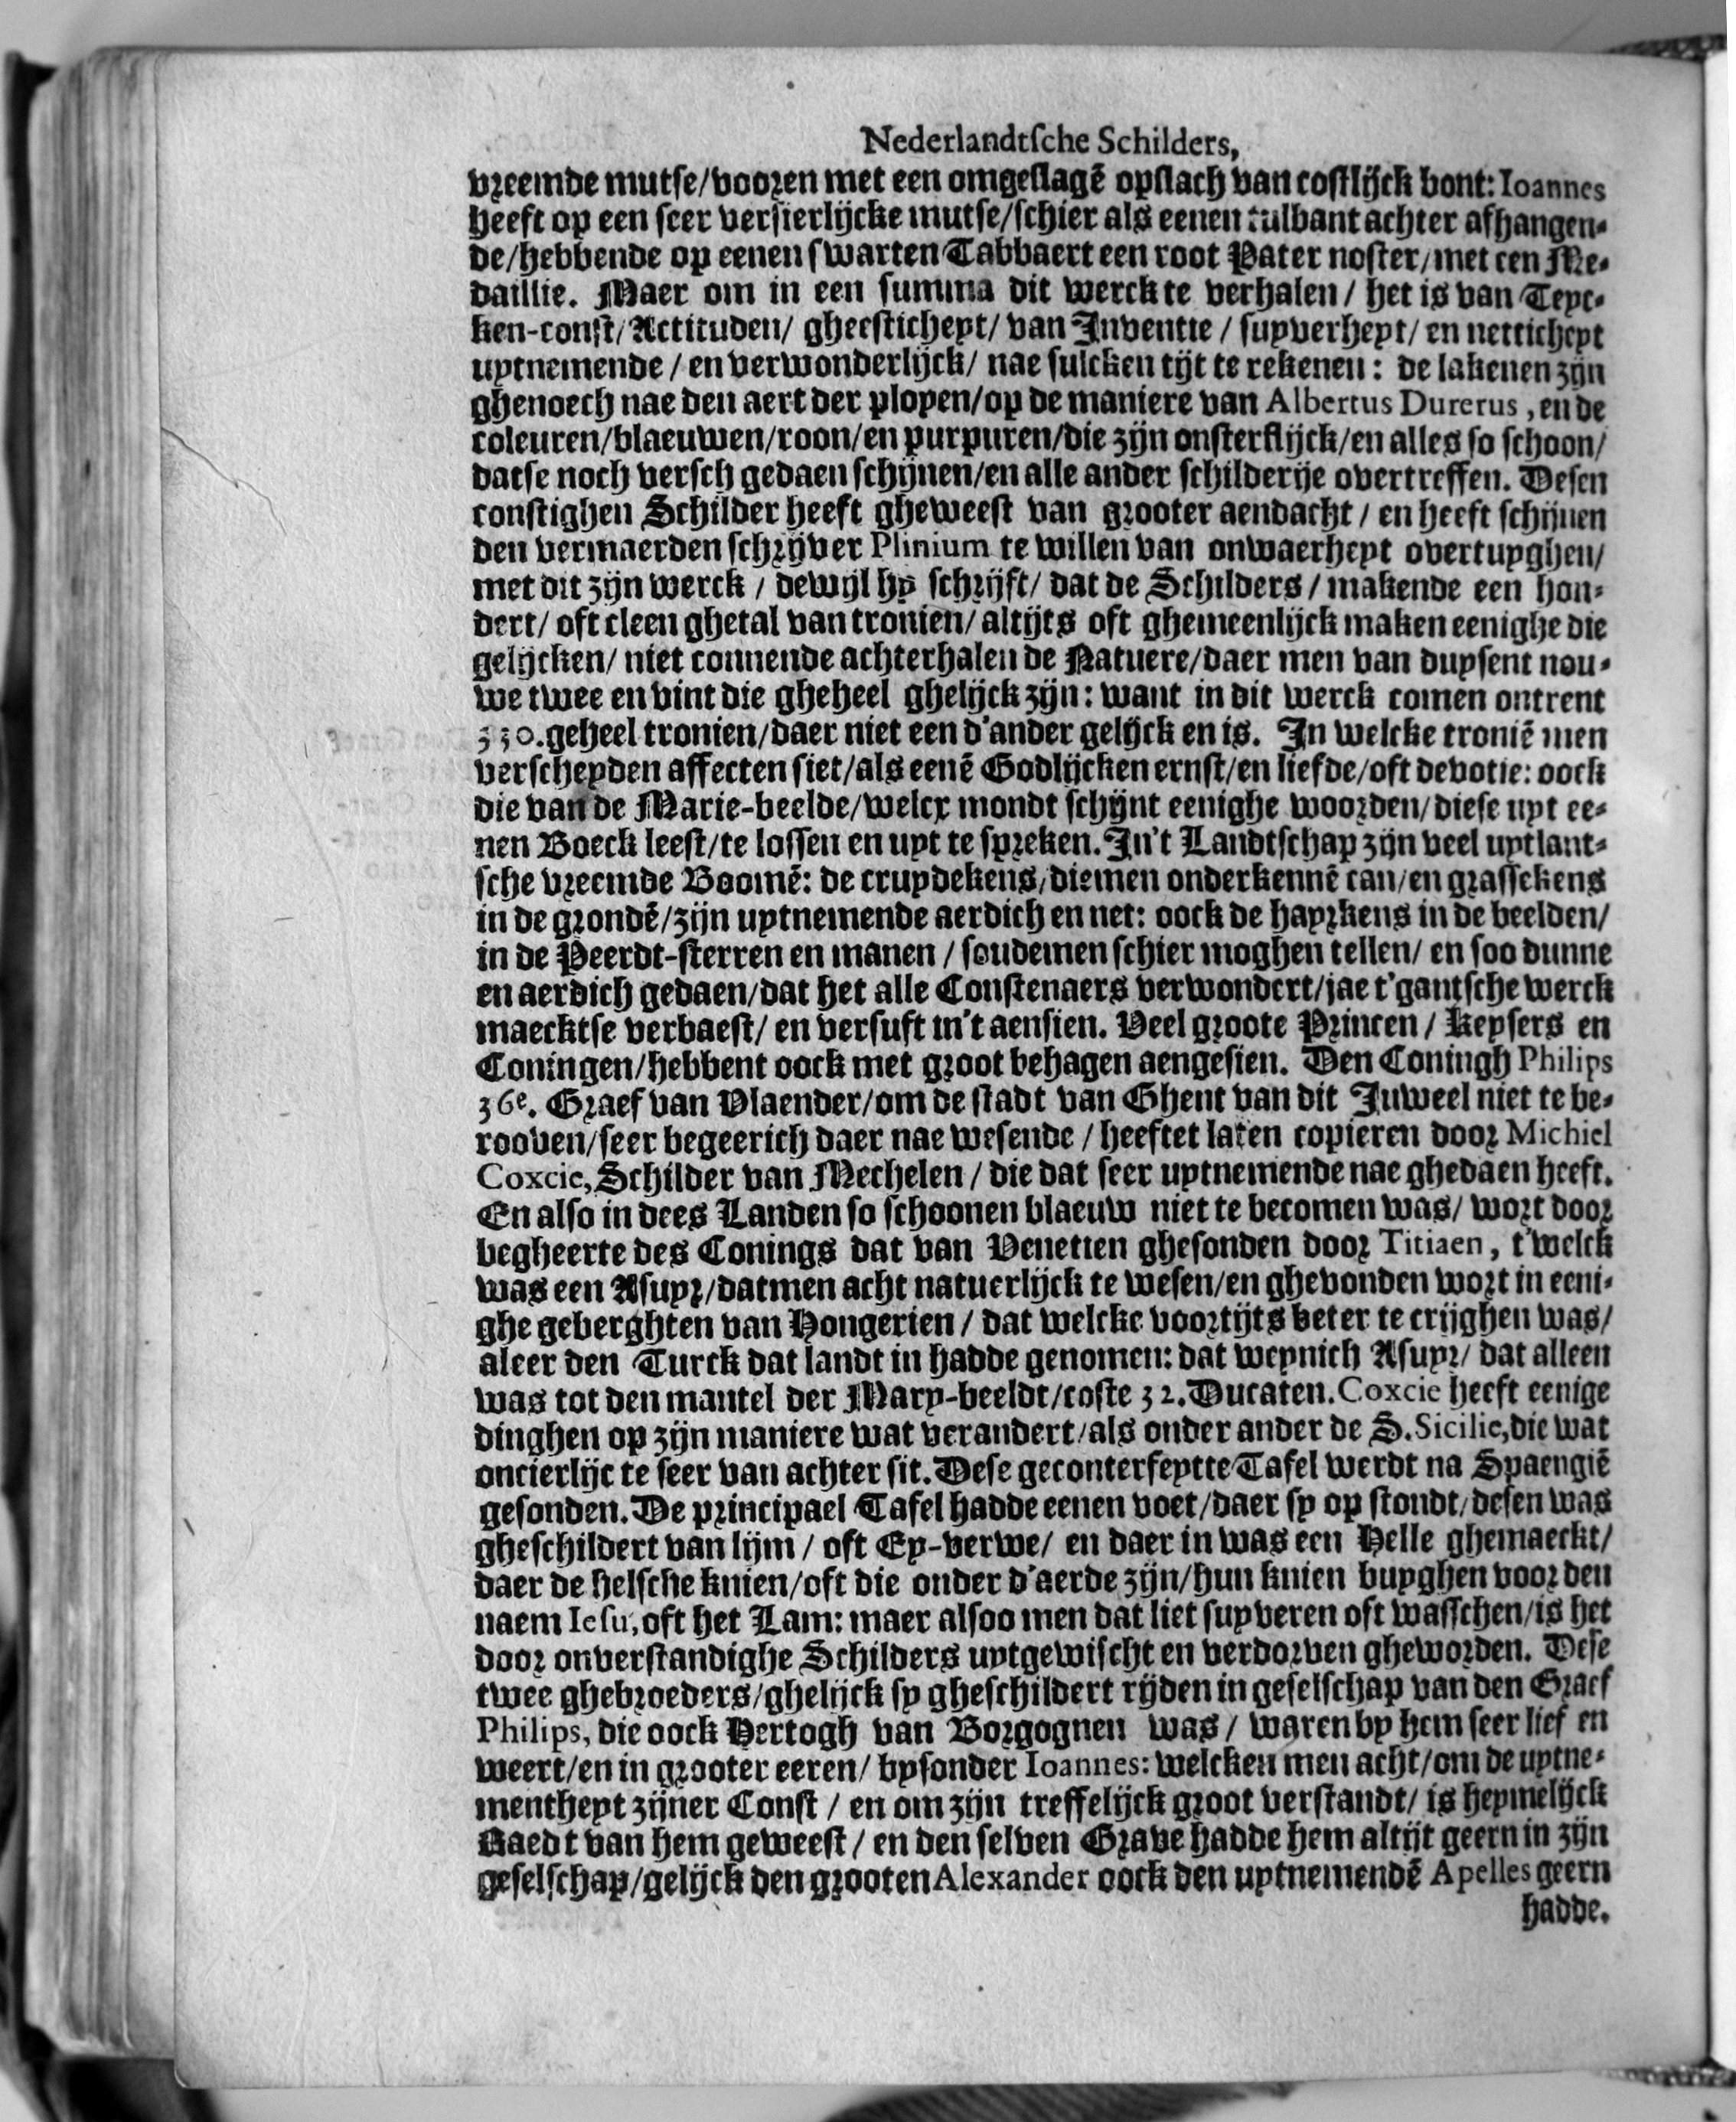 Nederlandtſche Schilders,
vreemde mutſe/vooren met een omgeſlagē opſlach van coſtlijck bont: Ioannes
heeft op een ſeer verſierlijcke mutſe/ſchier als eenen tulbant achter afhangen-
de/hebbende op eenen ſwarten Tabbaert een root Pater noſter/met een Me-
daillie. Maer om in een ſumma dit werck te verhalen / het is van Teyc-
ken-conſt/Actituden/ gheeſticheyt/ van Inventie / ſuyverheyt/ en netticheyt
uytnemende / en verwonderlijck/ nae ſulcken tijt te rekenen: de lakenen zijn
ghenoech nae den aert der ployen/op de maniere van Albertus Durerus, en de
coleuren/blaeuwen/roon/en purpuren/die zijn onſterflijck/en alles ſo ſchoon/
datſe noch verſch gedaen ſchijnen/en alle ander ſchilderije overtreffen. Deſen
conſtighen Schilder heeft gheweeſt van grooter aendacht / en heeft ſchijnen
den vermaerden ſchrijver Plinium te willen van onwaerheyt overtuyghen/
met dit zijn werck / dewijl hy ſchrijft/ dat de Schilders / makende een hon-
dert/ oft cleen ghetal van tronien/ altijts oft ghemeenlijck maken eenighe die
gelijcken/ niet connende achterhalen de Natuere/daer men van duyſent nou-
we twee en vint die gheheel ghelijck zijn: want in dit werck comen ontrent
330. geheel tronien/daer niet een d'ander gelijck en is. In welcke troniē men
verſcheyden affecten ſiet/als eenē Godlijcken ernſt/en liefde/oft devotie: oock
die van de Marie-beelde/welcx mondt ſchijnt eenighe woorden/dieſe uyt ee-
nen Boeck leeſt/te loſſen en uyt te ſpreken. In't Landtſchap zijn veel uytlant-
ſche vreemde Boomē: de cruydekens/diemen onderkennē can/en graſſekens
in de grondē/zijn uytnemende aerdich en net: oock de hayrkens in de beelden/
in de Peerdt-ſterren en manen / ſoudemen ſchier moghen tellen/ en ſoo dunne
en aerdich gedaen/dat het alle Conſtenaers verwondert/jae t'gantſche werck
maecktſe verbaeſt/ en verſuft in't aenſien. Veel groote Princen / Keyſers en
Coningen/hebbent oock met groot behagen aengeſien. Den Coningh Philips
36e. Graef van Vlaender/om de ſtadt van Ghent van dit Juweel niet te be-
rooven/ſeer begeerich daer nae weſende / heeftet laten copieren door Michiel
Coxcie, Schilder van Mechelen / die dat ſeer uytnemende nae ghedaen heeft.
En alſo in dees Landen ſo ſchoonen blaeuw niet te becomen was/ wort door
begheerte des Conings dat van Venetien gheſonden door Titiaen, t'welck
was een Aſuyr/datmen acht natuerlijck te weſen/en ghevonden wort in eeni-
ghe geberghten van Hongerien / dat welcke voortijts beter te crijghen was/
aleer den Turck dat landt in hadde genomen: dat weynich Aſuyr/ dat alleen
was tot den mantel der Mary-beeldt/coſte 32. Ducaten. Coxcie heeft eenige
dinghen op zijn maniere wat verandert/als onder ander de S. Sicilie, die wat
oncierlijc te ſeer van achter ſit. Deſe geconterfeytte Tafel werdt na Spaengiē
geſonden. De principael Tafel hadde eenen voet/daer ſy op ſtondt/deſen was
gheſchildert van lijm / oft Ey-verwe/ en daer in was een Helle ghemaeckt/
daer de helſche knien/oft die onder d'aerde zijn/hun knien buyghen voor den
naem Ieſu, oft het Lam: maer alſoo men dat liet ſuyveren oft waſſchen/is het
door onverſtandighe Schilders uytgewiſcht en verdorven gheworden. Deſe
twee ghebroeders/ghelijck ſy gheſchildert rijden in geſelſchap van den Graef
Philips, die oock Hertogh van Borgognen was / waren by hem ſeer lief en
weert/en in grooter eeren/ byſonder Ioannes: welcken men acht/om de uytne-
mentheyt zijner Conſt / en om zijn treffelijck groot verſtandt/ is heymelijck
Raedt van hem geweeſt / en den ſelven Grave hadde hem altijt geern in zijn
geſelſchap/gelijck den grooten Alexander oock den uytnemendē Apelles geern
hadde.